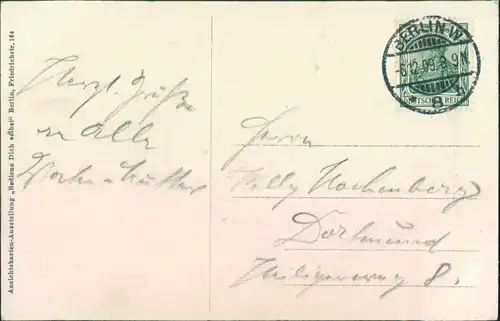 Ansichtskarten-Ausstellung „Bediene Dich selbst" Berlin, Friedrichstr. 164
Herzl. Grüße
an Alle
BERLIN W
-6.12.09. 8-9N.
DEUTSCHES REICH
Herrn
Willy Hachenberg
Dortmund
Heiligerweg 8.